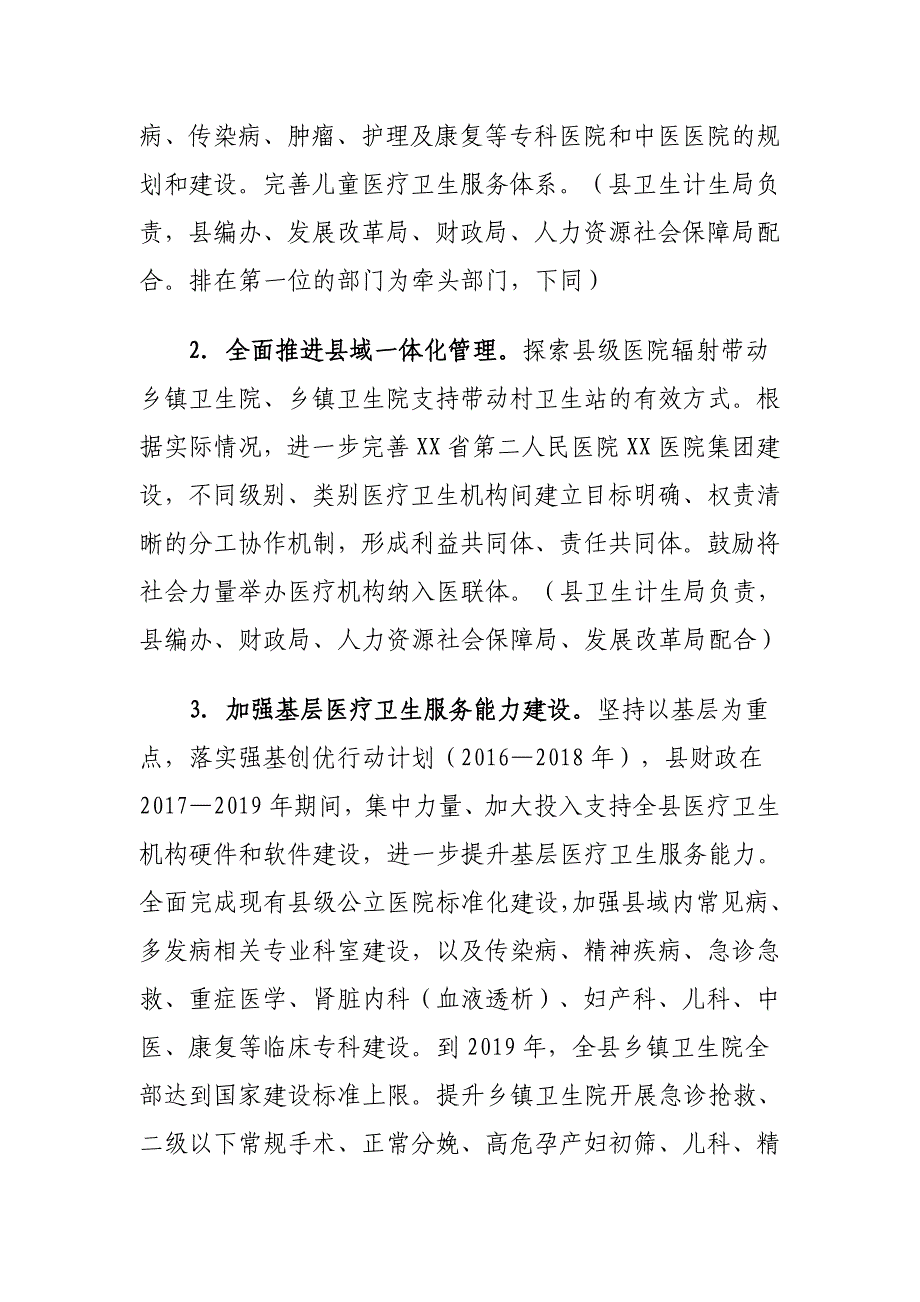 病、传染病、肿瘤、护理及康复等专科医院和中医医院的规
划和建设。完善儿童医疗卫生服务体系。（县卫生计生局负
责，县编办、发展改革局、财政局、人力资源社会保障局配
合。排在第一位的部门为牵头部门，下同）
2. 全面推进县域一体化管理。探索县级医院辐射带动
乡镇卫生院、乡镇卫生院支持带动村卫生站的有效方式。根
据实际情况，进一步完善XX省第二人民医院XX医院集团建
设，不同级别、类别医疗卫生机构间建立目标明确、权责清
晰的分工协作机制，形成利益共同体、责任共同体。鼓励将
社会力量举办医疗机构纳入医联体。（县卫生计生局负责，
县编办、财政局、人力资源社会保障局、发展改革局配合）
3. 加强基层医疗卫生服务能力建设。坚持以基层为重
点，落实强基创优行动计划（2016—2018年），县财政在
2017—2019年期间，集中力量、加大投入支持全县医疗卫生
机构硬件和软件建设，进一步提升基层医疗卫生服务能力。
全面完成现有县级公立医院标准化建设，加强县域内常见病、
多发病相关专业科室建设，以及传染病、精神疾病、急诊急
救、重症医学、肾脏内科（血液透析）、妇产科、儿科、中
医、康复等临床专科建设。到2019年，全县乡镇卫生院全
部达到国家建设标准上限。提升乡镇卫生院开展急诊抢救、
二级以下常规手术、正常分娩、高危孕产妇初筛、儿科、精